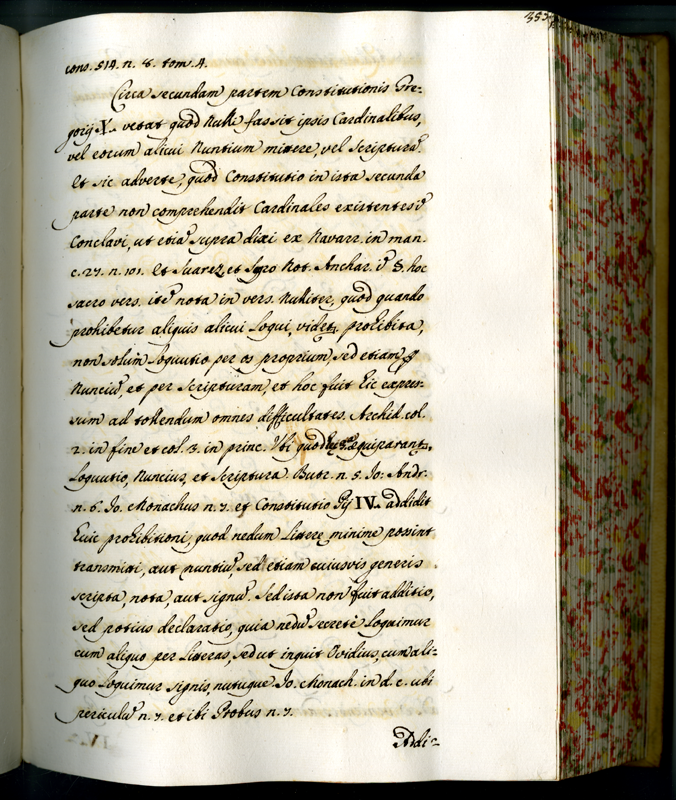 353
cons. 514. n. 8. tom. 4.
Circa secundam partem Constitutionis Gre-
gorij X. vetat quòd Nulli fas sit ipsis Cardinalibus,
vel eorum alicui Nuntium mittere, vel scripturã
Et sic adverte, quòd Constitutio in ista secunda
parte non comprehendit Cardinales existentes ĩ
Conclavi, ut etiã supra dixi ex Navarr. in man.
c. 27. n. 101. Et Suarez, et Not. Anchar. ĩ §. hoc
sacro vers. itẽ nota in vers. Nulliter, quòd quando
prohibetur aliquis alicui loqui, prohibita,
non solùm loquutio per os proprium, sed etiam
Nunciũ, et per scripturam, et hoc fuit hic expres-
sum ad tollendum omnes difficultates. Archid. col.
2. in fine et col. 3. in princ. Ubi quòd equiparant.
loquutio, Nuncius, et scriptura. Butr. n. 5. Jo: Andr.
n. 6. Jo. Monachus n. 7. et Constitutio Pij IV. addidit
huic prohibitioni, quod nedum littere minime possint
transmitti, aut nuntiũ, sed etiam cuiusvis generis
scripta, nota, aut signũ. Sed ista non fuit additio,
sed potius declaratio, quia nedũ secretè loquimur
cum aliquo per litteras, sed ut inquit Ovidius, cum ali-
quo loquimur signis, nutuque Jo. Monach. in d. c. ubi
periculũ n. 7. et ibi Probus n. 7.
Addi-